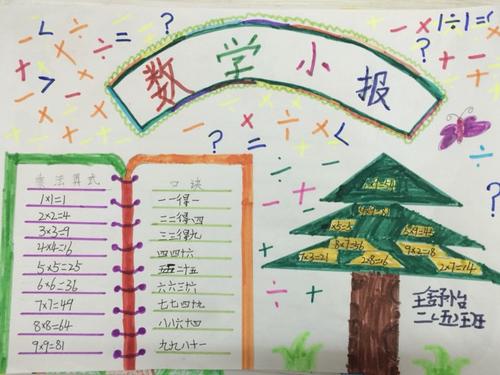 数学小报
1÷1=1
乘法算式
1×1=1
2×2=4
3×3=9
4×4=16
5×5=25
6×6=36
7×7=49
8×8=64
9×9=81
口诀
一一得一
二二得四
三三得九
四四十六
五五二十五
六六三六
七七四十九
八八六十四
九九八十一
5×9=45
8×7=56
9×2=18
7×3=21
2×8=16
2×7=14
二(五)班